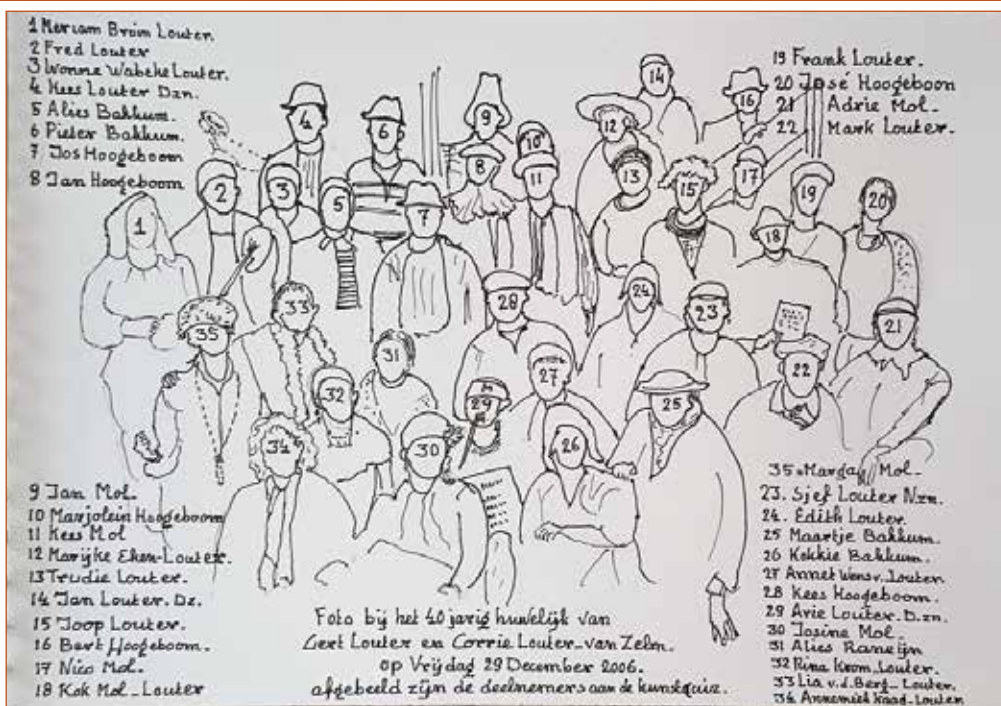 1 Meriam Broim Louter.
2 Fred Louter
3 Ivonne Wabeke Louter.
4 Kees Louter Dzn.
5 Alies Bakkum.
6 Pieter Bakkum.
7 Jos Hoogeboom
8 Jan Hoogeboom
19 Frank Louter.
20 José Hoogeboon
21 Adrie Mol.
22 Mark Louter.
14
4
6
9
16
12
10
8
13
2
3
5
11
15
17
19
20
1
7
18
24
33
28
23
21
35
31
27
22
32
29
25
34
30
26
9 Jan Mol.
10 Marjolein Hoogeboom
11 Kees Mol
12 Marijke Eken-Louter.
13 Trudie Louter.
14 Jan Louter. Dz.
15 Joop Louter.
16 Bert Hoogeboom.
17 Nico Mol.
18 Kok Mol-Louter
Foto bij het 40 jarig huwelijk van
Gert Louter en Corrie Louter-van Zelm.
op Vrijdag 29 December 2006.
afgebeeld zijn de deelnemers aan de kunstquiz.
35. Marga Mol.
23. Sjef Louter Nzn.
24. Edith Louter.
25 Maartje Bakkum.
26 Kokkie Bakkum.
27 Annet Wens v. Louter
28 Kees Hoogeboom.
29 Arie Louter. D.zn.
30 Josine Mol.
31 Alies Raneijn
32 Rina Krom_Louter.
33 Lia v.d. Berg-Louter.
34 Annemiek Kaag-Louter